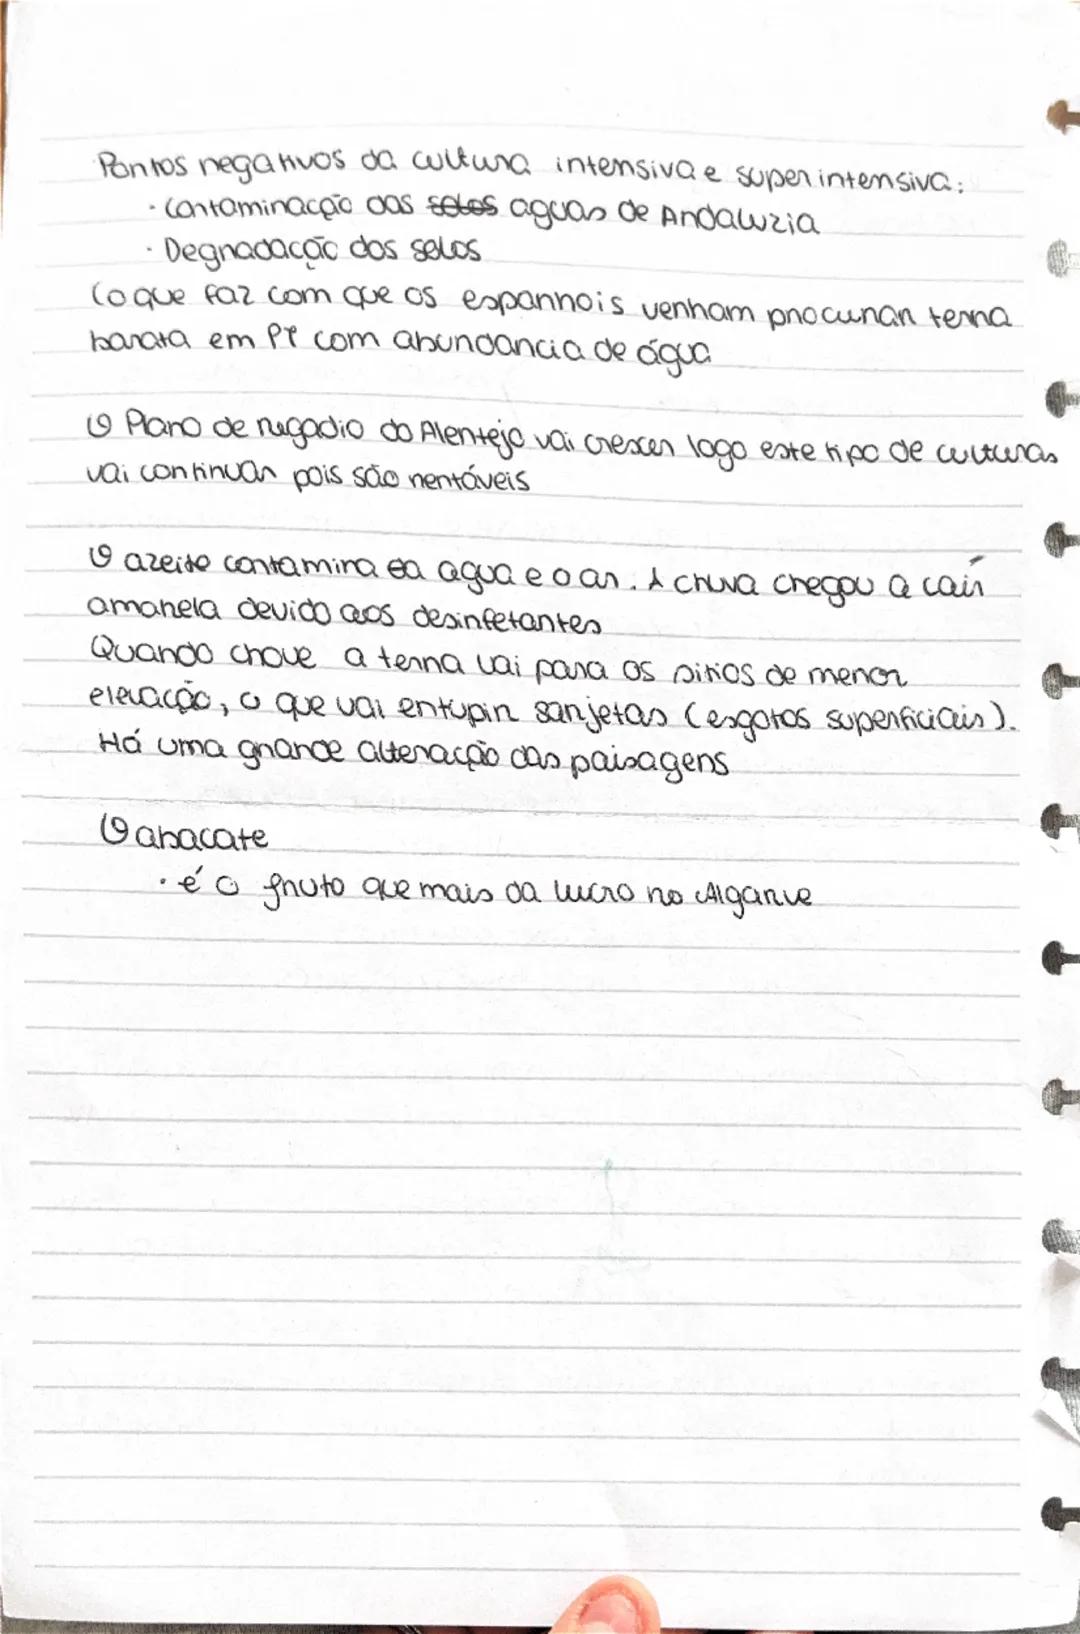 Pontos negativos da cultura intensiva e superintensiva:
· Contaminação das solos aguas de Andaluzia
· Degradação dos solos
(o que faz com que os espanhois venham procurar terra
barata em PT com abundancia de água
O Plano de regadio do Alentejo vai crescer logo este tipo de culturas
vai continuar pois são rentáveis
O azeite contamina a agua e o ar. A chuva chegou a cair
amarela devido aos desinfetantes
Quando chove a terra vai para os sitios de menor
elevação, o que vai entupir sarjetas (esgotos superficiais).
Há uma grande alteração das paisagens
O abacate
· é o fruto que mais da lucro no Algarve